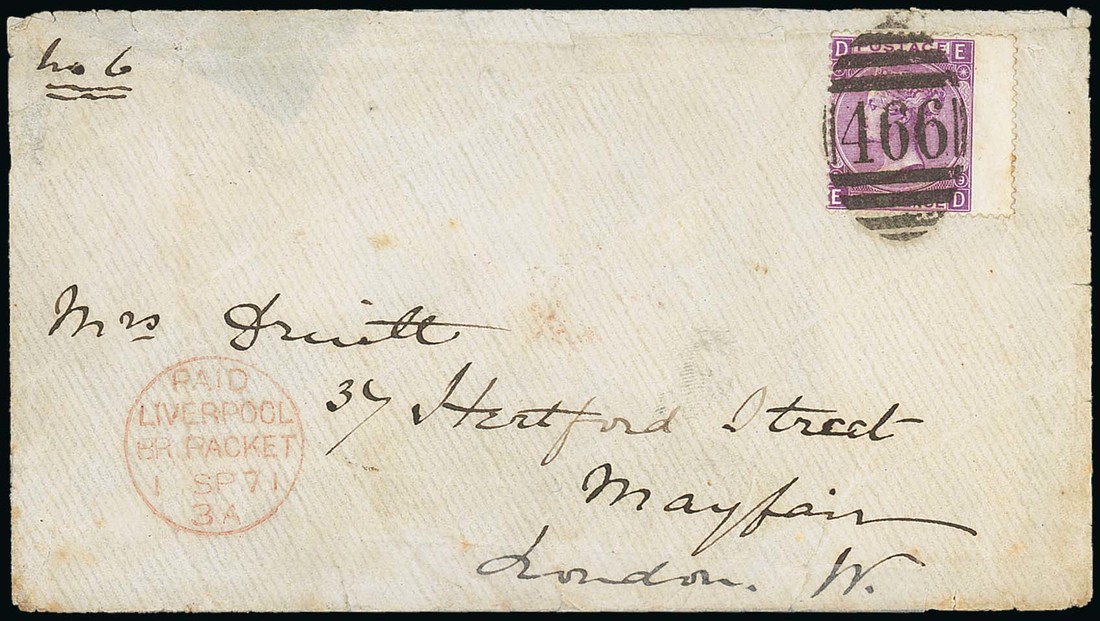 No 6
D POSTAGE E
466
E D
Mrs Driett
37 Hertford Street
Mayfair
London. W.
PAID
LIVERPOOL
BR. PACKET
1 SP 71
3A